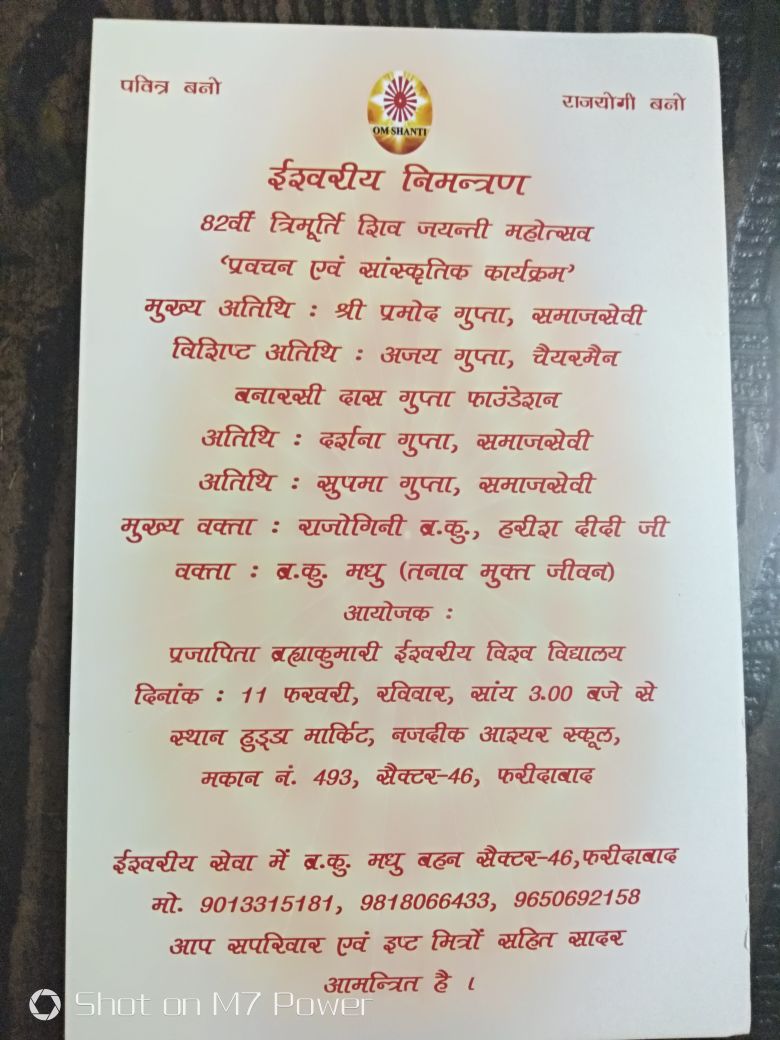 पवित्र बनो
राजयोगी बनो
OM SHANTI
ईश्वरीय निमन्त्रण
82वीं त्रिमूर्ति शिव जयन्ती महोत्सव
‘प्रवचन एवं सांस्कृतिक कार्यक्रम’
मुख्य अतिथि : श्री प्रमोद गुप्ता, समाजसेवी
विशिष्ट अतिथि : अजय गुप्ता, चैयरमैन
बनारसी दास गुप्ता फाउंडेशन
अतिथि : दर्शना गुप्ता, समाजसेवी
अतिथि : सुषमा गुप्ता, समाजसेवी
मुख्य वक्ता : राजोगिनी ब्र.कु., हरीश दीदी जी
वक्ता : ब्र.कु. मधु (तनाव मुक्त जीवन)
आयोजक :
प्रजापिता ब्रह्माकुमारी ईश्वरीय विश्व विद्यालय
दिनांक : 11 फरवरी, रविवार, सांय 3.00 बजे से
स्थान हुड्डा मार्किट, नजदीक आश्यर स्कूल,
मकान नं. 493, सैक्टर-46, फरीदाबाद
ईश्वरीय सेवा में ब्र.कु. मधु बहन सैक्टर-46,फरीदाबाद
मो. 9013315181, 9818066433, 9650692158
आप सपरिवार एवं इष्ट मित्रों सहित सादर
आमन्त्रित है ।
Shot on M7 Power